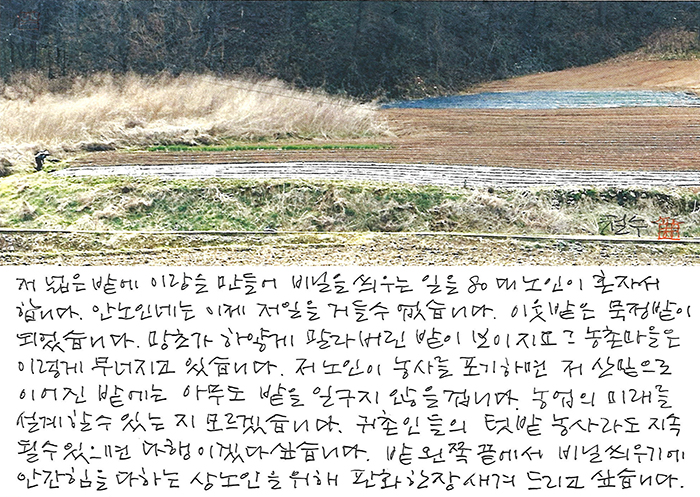 철수
저 넓은 밭에 이랑을 만들어 비닐을 씌우는 일을 80대 노인이 혼자서
합니다. 안노인네는 이제 저일을 거들수 없습니다. 이웃밭은 묵정밭이
되었습니다. 망초가 하얗게 말라버린 밭이 보이지요? 농촌마을은
이렇게 무너지고 있습니다. 저 노인이 농사를 포기하면 저 산밑으로
이어진 밭에는 아무도 밭을 일구지 않을겁니다. 농업의 미래를
설계할수 있는 지 모르겠습니다. 귀촌인들의 텃밭 농사라도 지속
될수있으면 다행이겠다 싶습니다. 밭 왼쪽 끝에서 비닐씌우기에
안간힘을 다하는 상노인을 위해 판화한장 새겨 드리고 싶습니다.